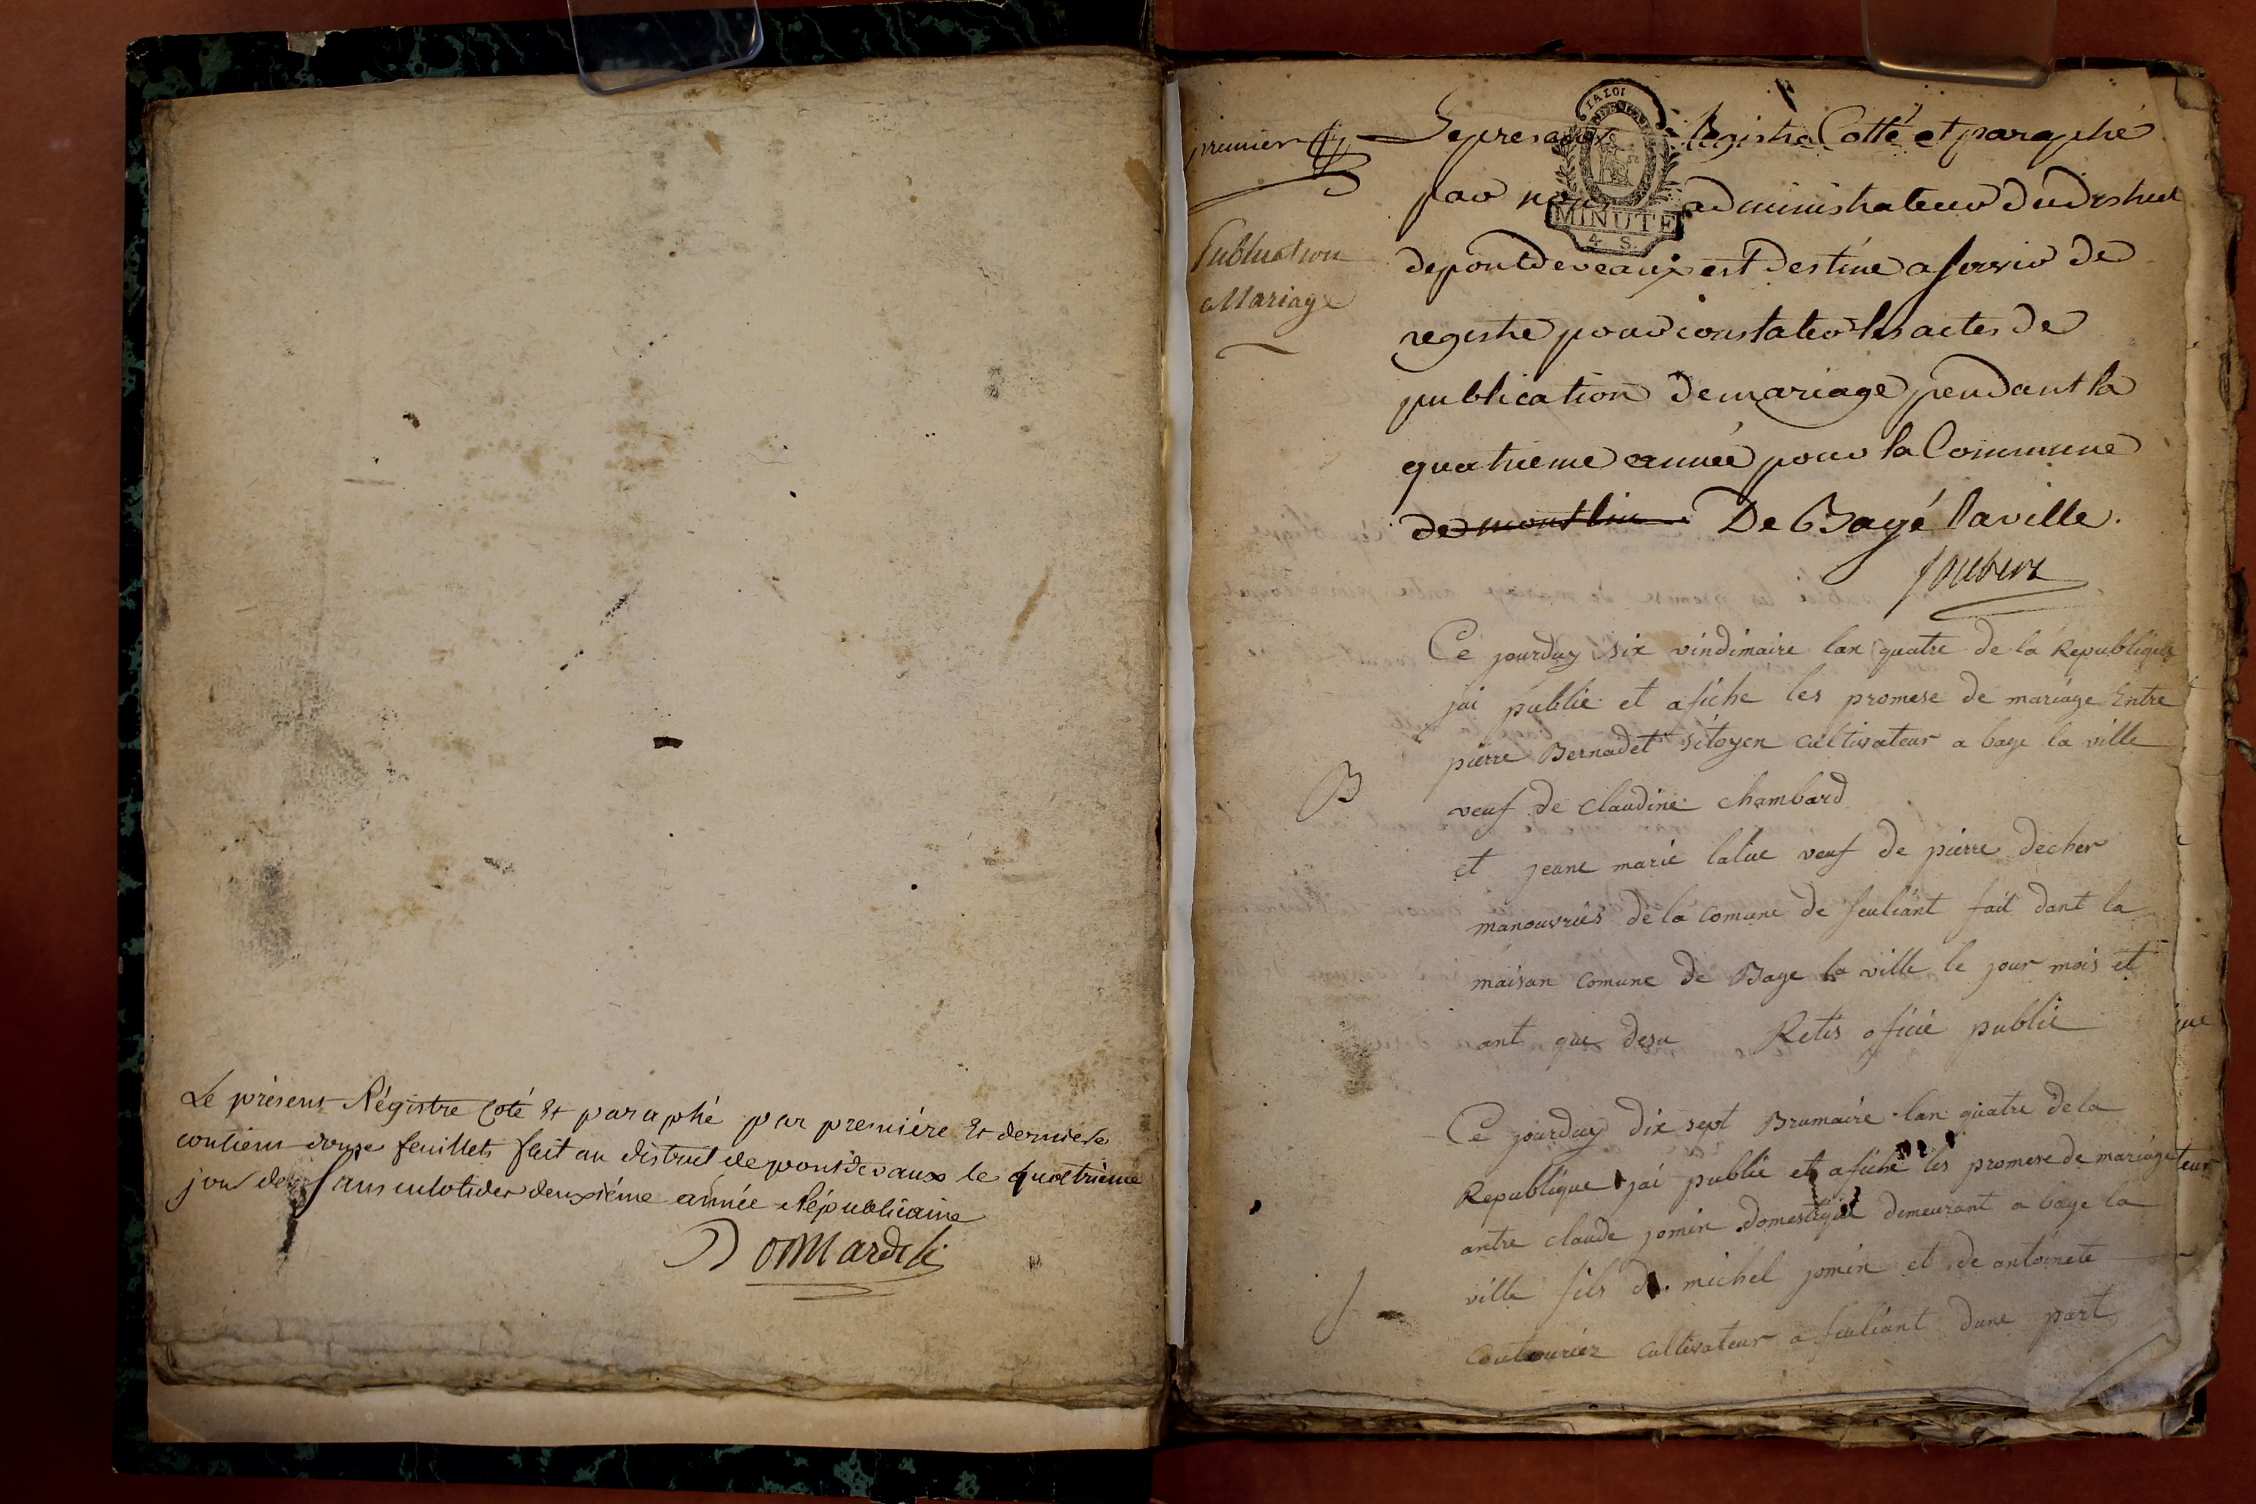 Le présent Régistre Coté Et paraphé par premiére Et derniere
contient douze feuillets fait au district de pontdevaux le quatrième
jour des sans culotides deuxiéme année Républicaine
premier
Le present Registre Cotté et paraphé
par nous administrateur du district
de pont de veaux est destiné a servir de
registre pour constater les actes de
publication de mariage pendant la
quatrieme année pour la Commune
de montlin De Bagé la ville.
Joubert
Publication
Mariage
LA LOI
MINUTE
4 S.
Ce jourduy six vindimaire lan quatre de la Republique
jai publie et afiche les promese de mariage Entre
pierre Bernadet sitoyen cultivateur a bage la ville
B
veuf de claudine chambard
et jeane marie latue veuf de pierre decher
manouvries de la comune de feuliant fait dant la
maison comune de Bage la ville le jour mois et
ant que desu Retis oficie public
Ce jourduy dix sept Brumaire lan quatre de la
Republique jai publie et afiche les promese de mariage
antre claude jomin domestique demeurant a bage la
ville fils de michel jomin et de antoinete
J
couturier cultivateur a feuliant dune part